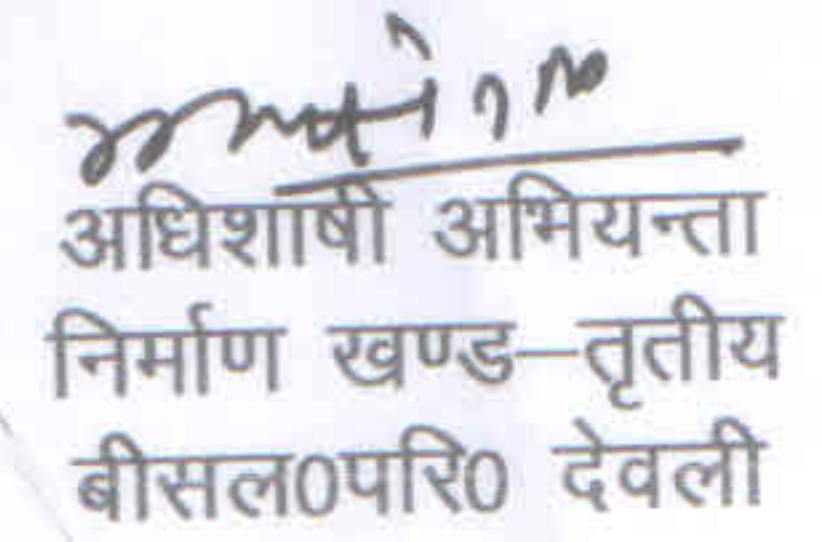 अधिशाषी अभियन्ता
निर्माण खण्ड–तृतीय
बीसल0परि0 देवली